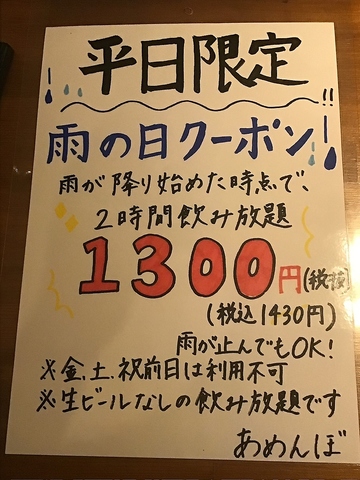 平日限定!!
雨の日クーポン!
雨が降り始めた時点で、
2時間飲み放題
1300円(税抜)
(税込1430円)
雨が止んでもOK!
※金、土、祝前日は利用不可
※生ビールなしの飲み放題です
あめんぼ